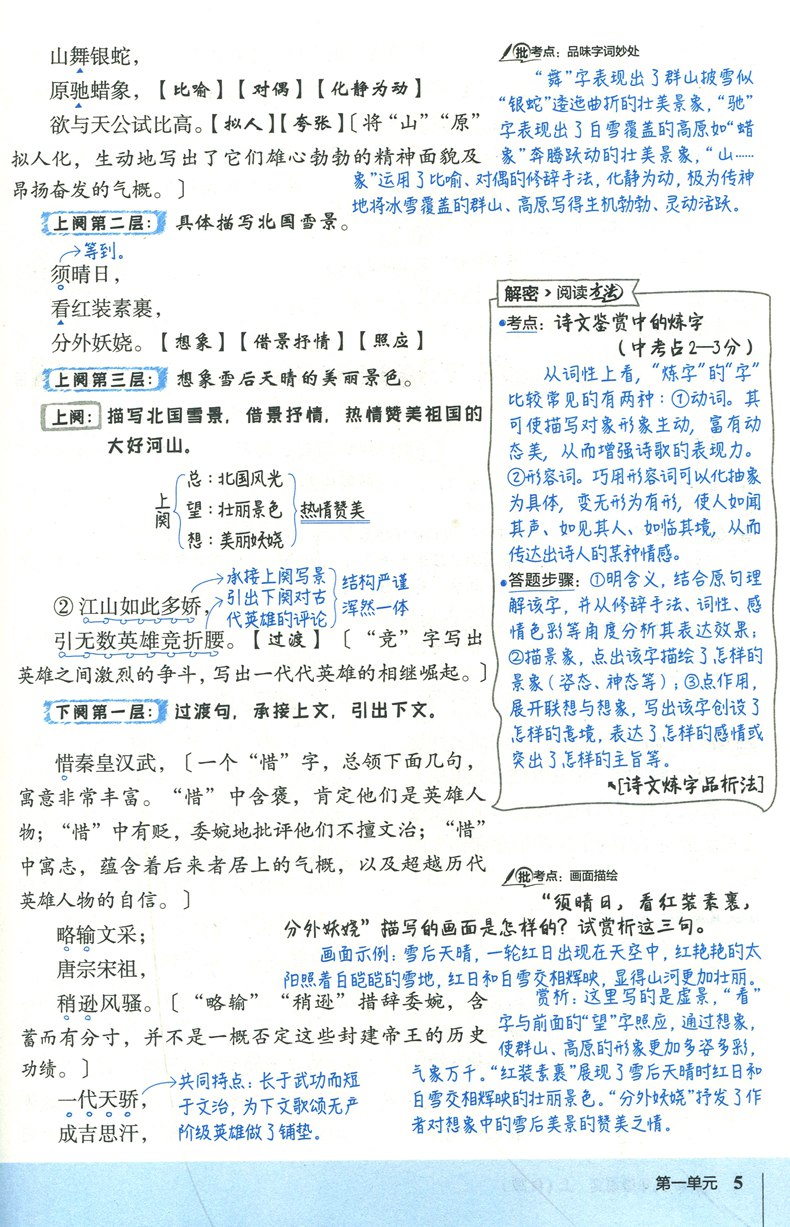 山舞银蛇，
原驰蜡象，【比喻】【对偶】【化静为动】
欲与天公试比高。【拟人】【夸张】〔将“山”“原”
拟人化，生动地写出了它们雄心勃勃的精神面貌及
昂扬奋发的气概。〕
批 考点：品味字词妙处
“舞”字表现出了群山披雪似
“银蛇”逶迤曲折的壮美景象，“驰”
字表现出了白雪覆盖的高原如“蜡
象”奔腾跃动的壮美景象，“山……
象”运用了比喻、对偶的修辞手法，化静为动，极为传神
地将冰雪覆盖的群山、高原写得生机勃勃、灵动活跃。
上阕第二层：具体描写北国雪景。
等到。
须晴日，
看红装素裹，
分外妖娆。【想象】【借景抒情】【照应】
上阕第三层：想象雪后天晴的美丽景色。
上阕：描写北国雪景，借景抒情，热情赞美祖国的
大好河山。
上阕
总：北国风光
望：壮丽景色
想：美丽妖娆
热情赞美
解密 > 阅读方法
考点：诗文鉴赏中的炼字
（中考占2—3分）
从词性上看，“炼字”的“字”
比较常见的有两种：①动词。其
可使描写对象形象生动，富有动
态美，从而增强诗歌的表现力。
②形容词。巧用形容词可以化抽象
为具体，变无形为有形，使人如闻
其声、如见其人、如临其境，从而
传达出诗人的某种情感。
答题步骤：①明含义，结合原句理
解该字，并从修辞手法、词性、感
情色彩等角度分析其表达效果；
②描景象，点出该字描绘了怎样的
景象（姿态、神态等）；③点作用，
展开联想与想象，写出该字创设了
怎样的意境，表达了怎样的感情或
突出了怎样的主旨等。
[诗文炼字品析法]
②江山如此多娇，
承接上阕写景
引出下阕对古
代英雄的评论
结构严谨
浑然一体
引无数英雄竞折腰。【过渡】〔“竞”字写出
英雄之间激烈的争斗，写出一代代英雄的相继崛起。〕
下阕第一层：过渡句，承接上文，引出下文。
惜秦皇汉武，〔一个“惜”字，总领下面几句，
寓意非常丰富。“惜”中含褒，肯定他们是英雄人
物；“惜”中有贬，委婉地批评他们不擅文治；“惜”
中寓志，蕴含着后来者居上的气概，以及超越历代
英雄人物的自信。〕
略输文采；
唐宗宋祖，
稍逊风骚。〔“略输”“稍逊”措辞委婉，含
蓄而有分寸，并不是一概否定这些封建帝王的历史
功绩。〕
一代天骄，
成吉思汗，
共同特点：长于武功而短
于文治，为下文歌颂无产
阶级英雄做了铺垫。
批 考点：画面描绘
“须晴日，看红装素裹，
分外妖娆”描写的画面是怎样的？试赏析这三句。
画面示例：雪后天晴，一轮红日出现在天空中，红艳艳的太
阳照着白皑皑的雪地，红日和白雪交相辉映，显得山河更加壮丽。
赏析：这里写的是虚景，“看”
字与前面的“望”字照应，通过想象，
使群山、高原的形象更加多姿多彩，
气象万千。“红装素裹”展现了雪后天晴时红日和
白雪交相辉映的壮丽景色。“分外妖娆”抒发了作
者对想象中的雪后美景的赞美之情。
第一单元 5